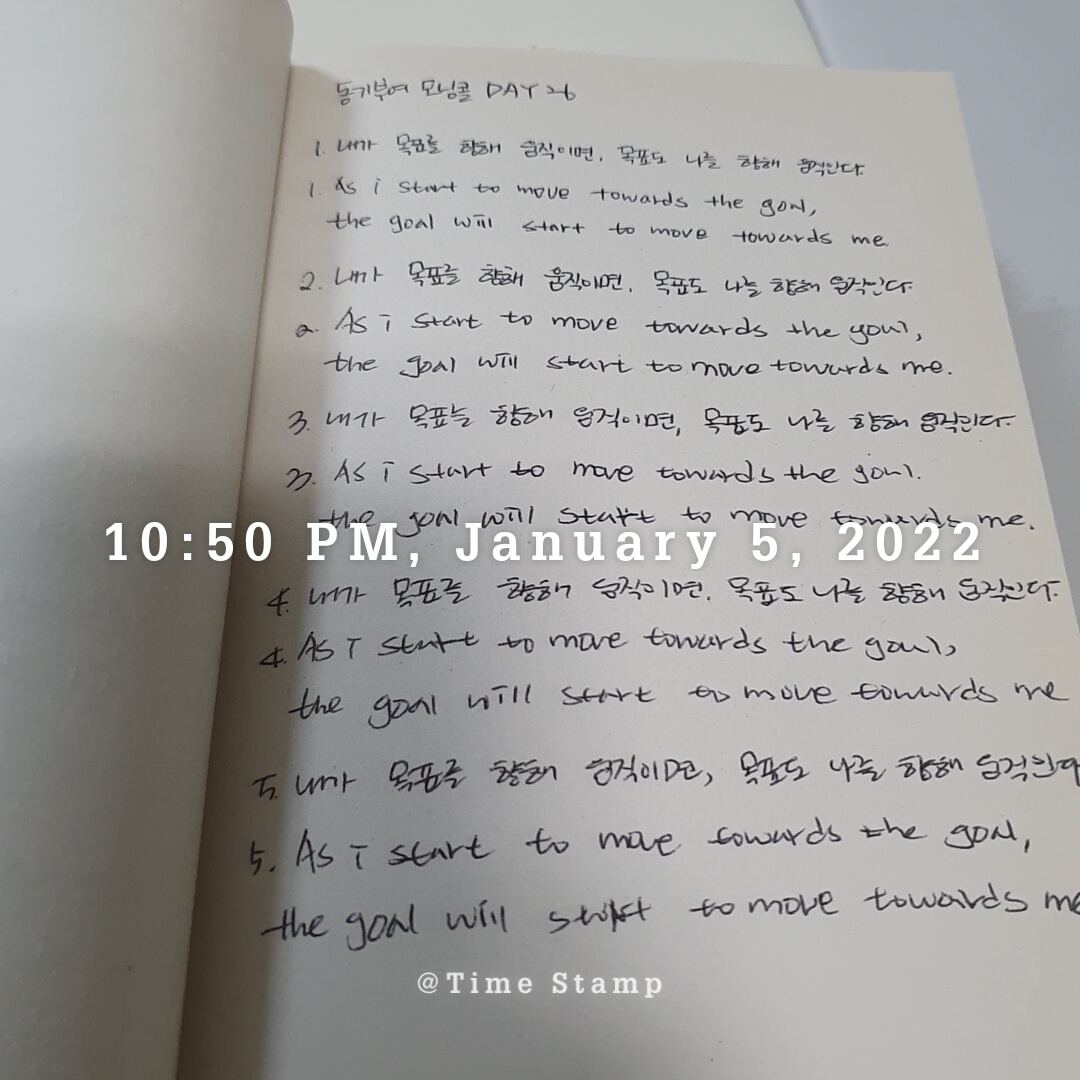 동기부여 모닝콜 DAY 26
1. 내가 목표를 향해 움직이면, 목표도 나를 향해 움직인다.
1. As i start to move towards the goal,
the goal will start to move towards me
2. 내가 목표를 향해 움직이면, 목표도 나를 향해 움직인다.
2. As i start to move towards the goal,
the goal will start to move towards me.
3. 내가 목표를 향해 움직이면, 목표도 나를 향해 움직인다.
3. As i start to move towards the goal.
the goal will start to move towards me.
10:50 PM, January 5, 2022
4. 내가 목표를 향해 움직이면, 목표도 나를 향해 움직인다.
4. As i start to move towards the goal,
the goal will start to move towards me
5. 내가 목표를 향해 움직이면, 목표도 나를 향해 움직인다
5. As i start to move towards the goal,
the goal will start to move towards me
@Time Stamp